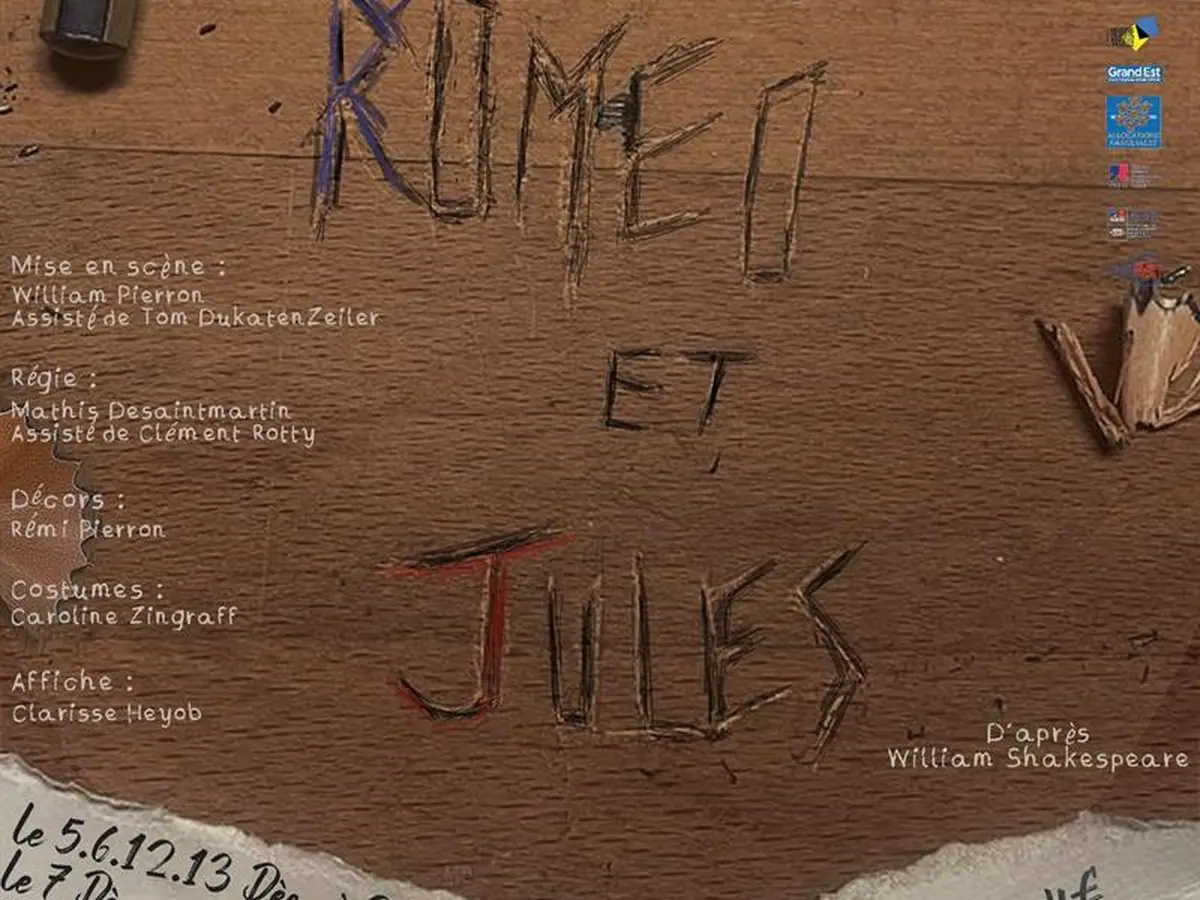 ROMEO
ET
JULES
Mise en scène :
William Pierron
Assisté de Tom DukatenZeiler
Régie :
Mathis Desaintmartin
Assisté de Clément Rotty
Décors :
Rémi Pierron
Costumes :
Caroline Zingraff
Affiche :
Clarisse Heyob
D'après
William Shakespeare
Grand Est
ALLOCATIONS
FAMILIALES
le 5.6.12.13
le 7